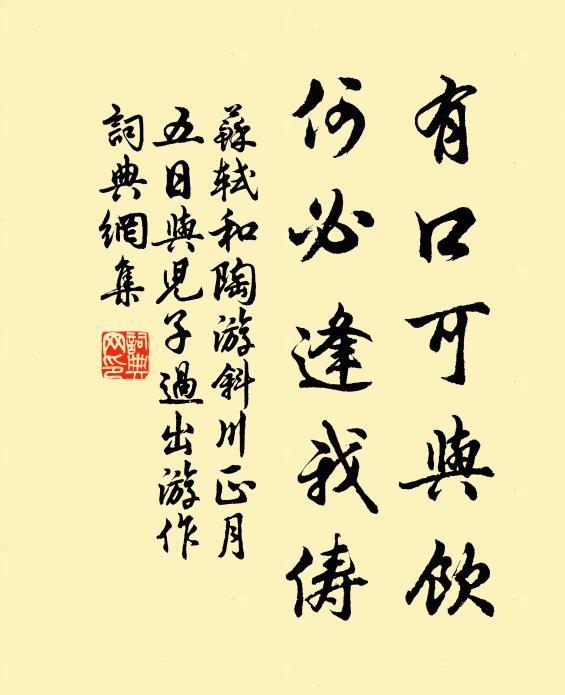 有口可與飲
何必逢我儔
蘇軾和陶游斜川正月
五日與児子過出游作
詞典網集
詞典
网印